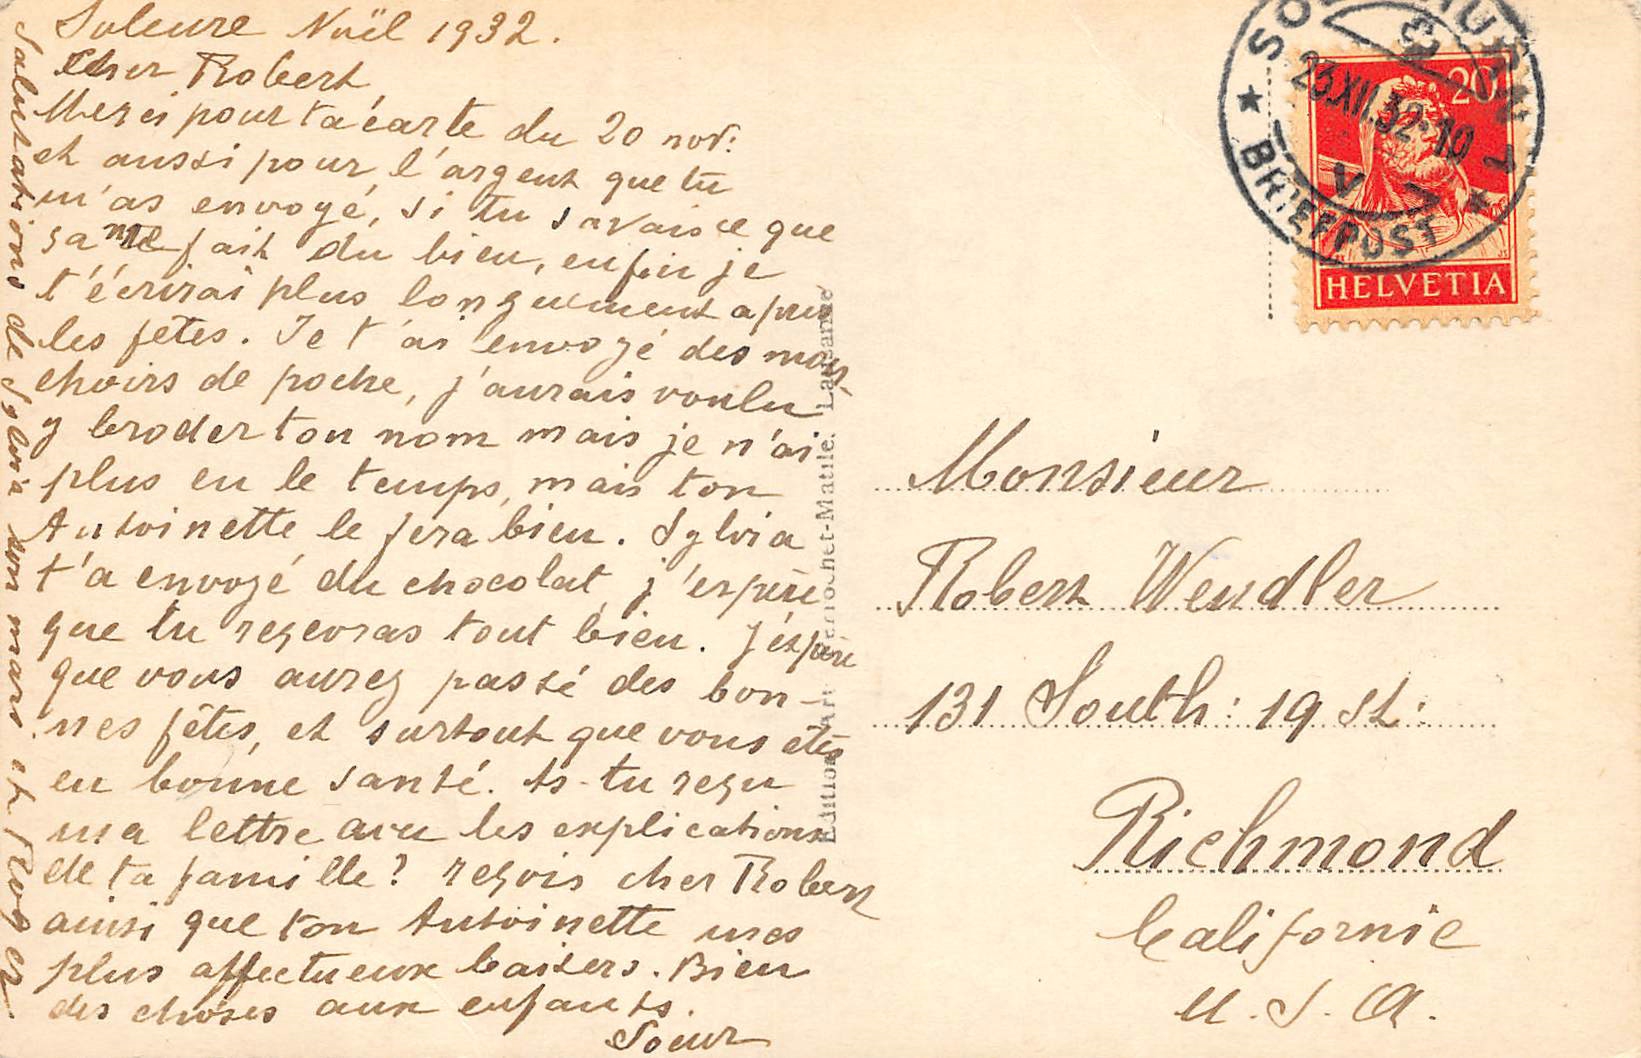 Soleure Noël 1932.
Cher Robert
Merci pour ta carte du 20 nov:
et aussi pour l'argent que tu
m'as envoyé, si tu savais ce que
sa me fait du bien, enfin je
t'écrirai plus longuement apres
les fêtes. Je t'ai envoyé des mou-
choirs de poche, j'aurais voulu
y broder ton nom mais je n'ai
plus eu le temps, mais ton
Antoinette le fera bien. Sylvia
t'a envoyé du chocolat, j'espère
que tu reçevras tout bien. J'éspère
que vous aurez passé des bon-
nes fêtes, et surtout que vous etes
en bonne santé. As-tu reçu
ma lettre avec les explications
de ta famille? reçois cher Robert
ainsi que ton Antoinette mes
plus affectueux baisers. Bien
des choses aux enfants.
Soeur
Salutations de Sylvia son mari et Roger
Edition Art. Perrochet-Matile, Lausanne
SOLOTHURN 1
23.XII.32-10
V
★ BRIEFPOST ★
20
HELVETIA
Monsieur
Robert Wendler
131 South: 19 St:
Richmond
Californie
U.S.A.